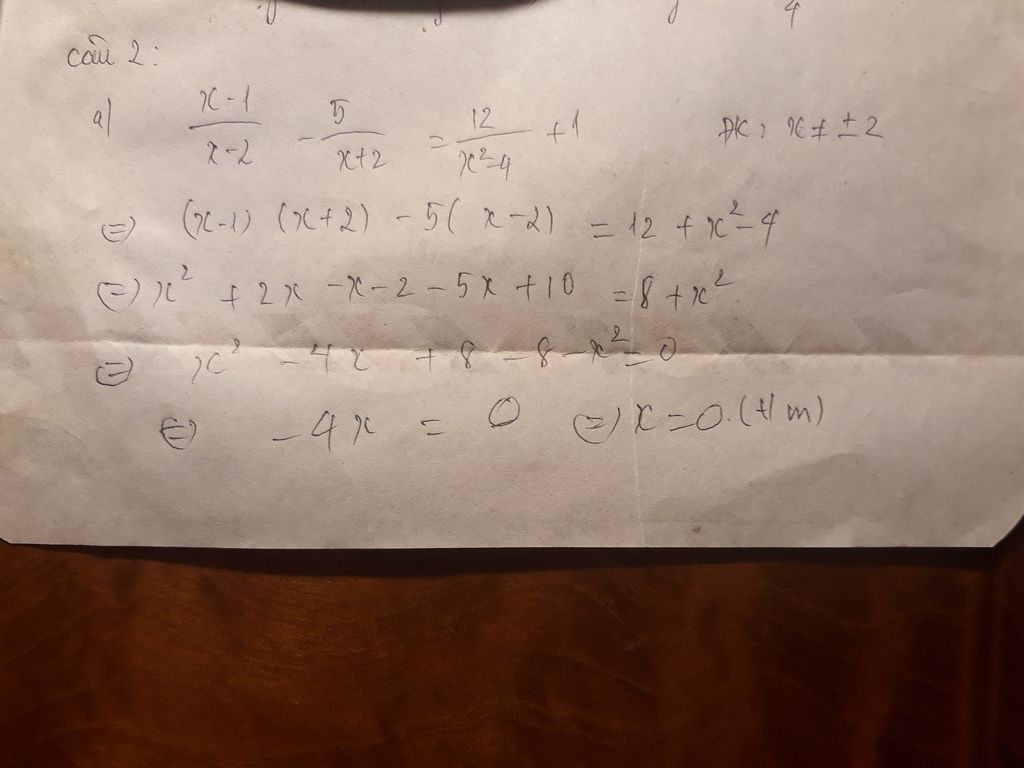 câu 2:
a) \frac{x-1}{x-2} - \frac{5}{x+2} = \frac{12}{x²-4} + 1 ĐK: x ≠ ± 2
⇔ (x-1) (x+2) - 5( x-2) = 12 + x² - 4
⇔ x² + 2x - x - 2 - 5x + 10 = 8 + x²
⇔ x² - 4x + 8 - 8 - x² = 0
⇔ - 4x = 0 ⇔ x = 0. (t/m)